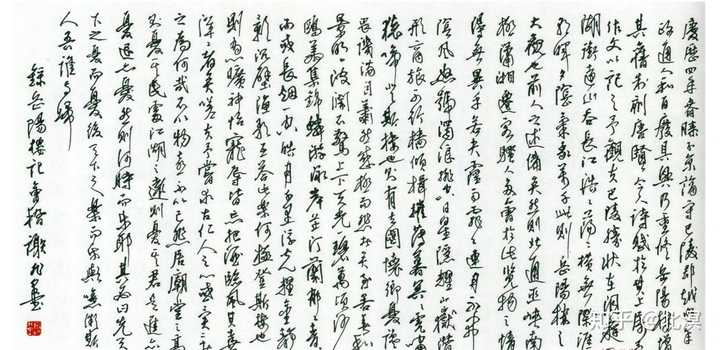 慶歷四年春滕子京謫守巴陵郡越明年
政通人和百廢具興乃重修岳陽樓增
其舊制刻唐賢今人詩賦於其上屬予
作文以記之予觀夫巴陵勝狀在洞庭一
湖銜遠山吞長江浩浩湯湯橫無際涯
朝暉夕陰氣象萬千此則岳陽樓之
大觀也前人之述備矣然則北通巫峽南
極瀟湘遷客騷人多會於此覽物之情
得無異乎若夫霪雨霏霏連月不開
陰風怒號濁浪排空日星隱耀山嶽潛
形商旅不行檣傾楫摧薄暮冥冥虎嘯
猿啼登斯樓也則有去國懷鄉憂讒
畏譏滿目蕭然感極而悲者矣至若春和
景明波瀾不驚上下天光一碧萬頃沙
鷗翔集錦鱗游泳岸芷汀蘭郁郁青青
而或長煙一空皓月千里浮光耀金靜
影沉璧漁歌互答此樂何極登斯樓也
則有心曠神怡寵辱皆忘把酒臨風其喜
洋洋者矣嗟夫予嘗求古仁人之心或異二者
之為何哉不以物喜不以己悲居廟堂之高
則憂其民處江湖之遠則憂其君是進亦
憂退亦憂然則何時而樂耶其必曰先天
下之憂而憂後天下之樂而樂歟噫微斯
人吾誰與歸
錄岳陽樓記會稽謝 墨
知乎 @北冥